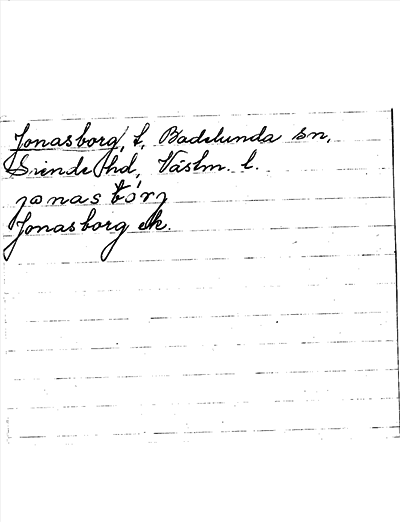 Jonasborg, t, Badelunda sn,
Siende hd, Västm. l.
jonasbórj
Jonasborg ek.